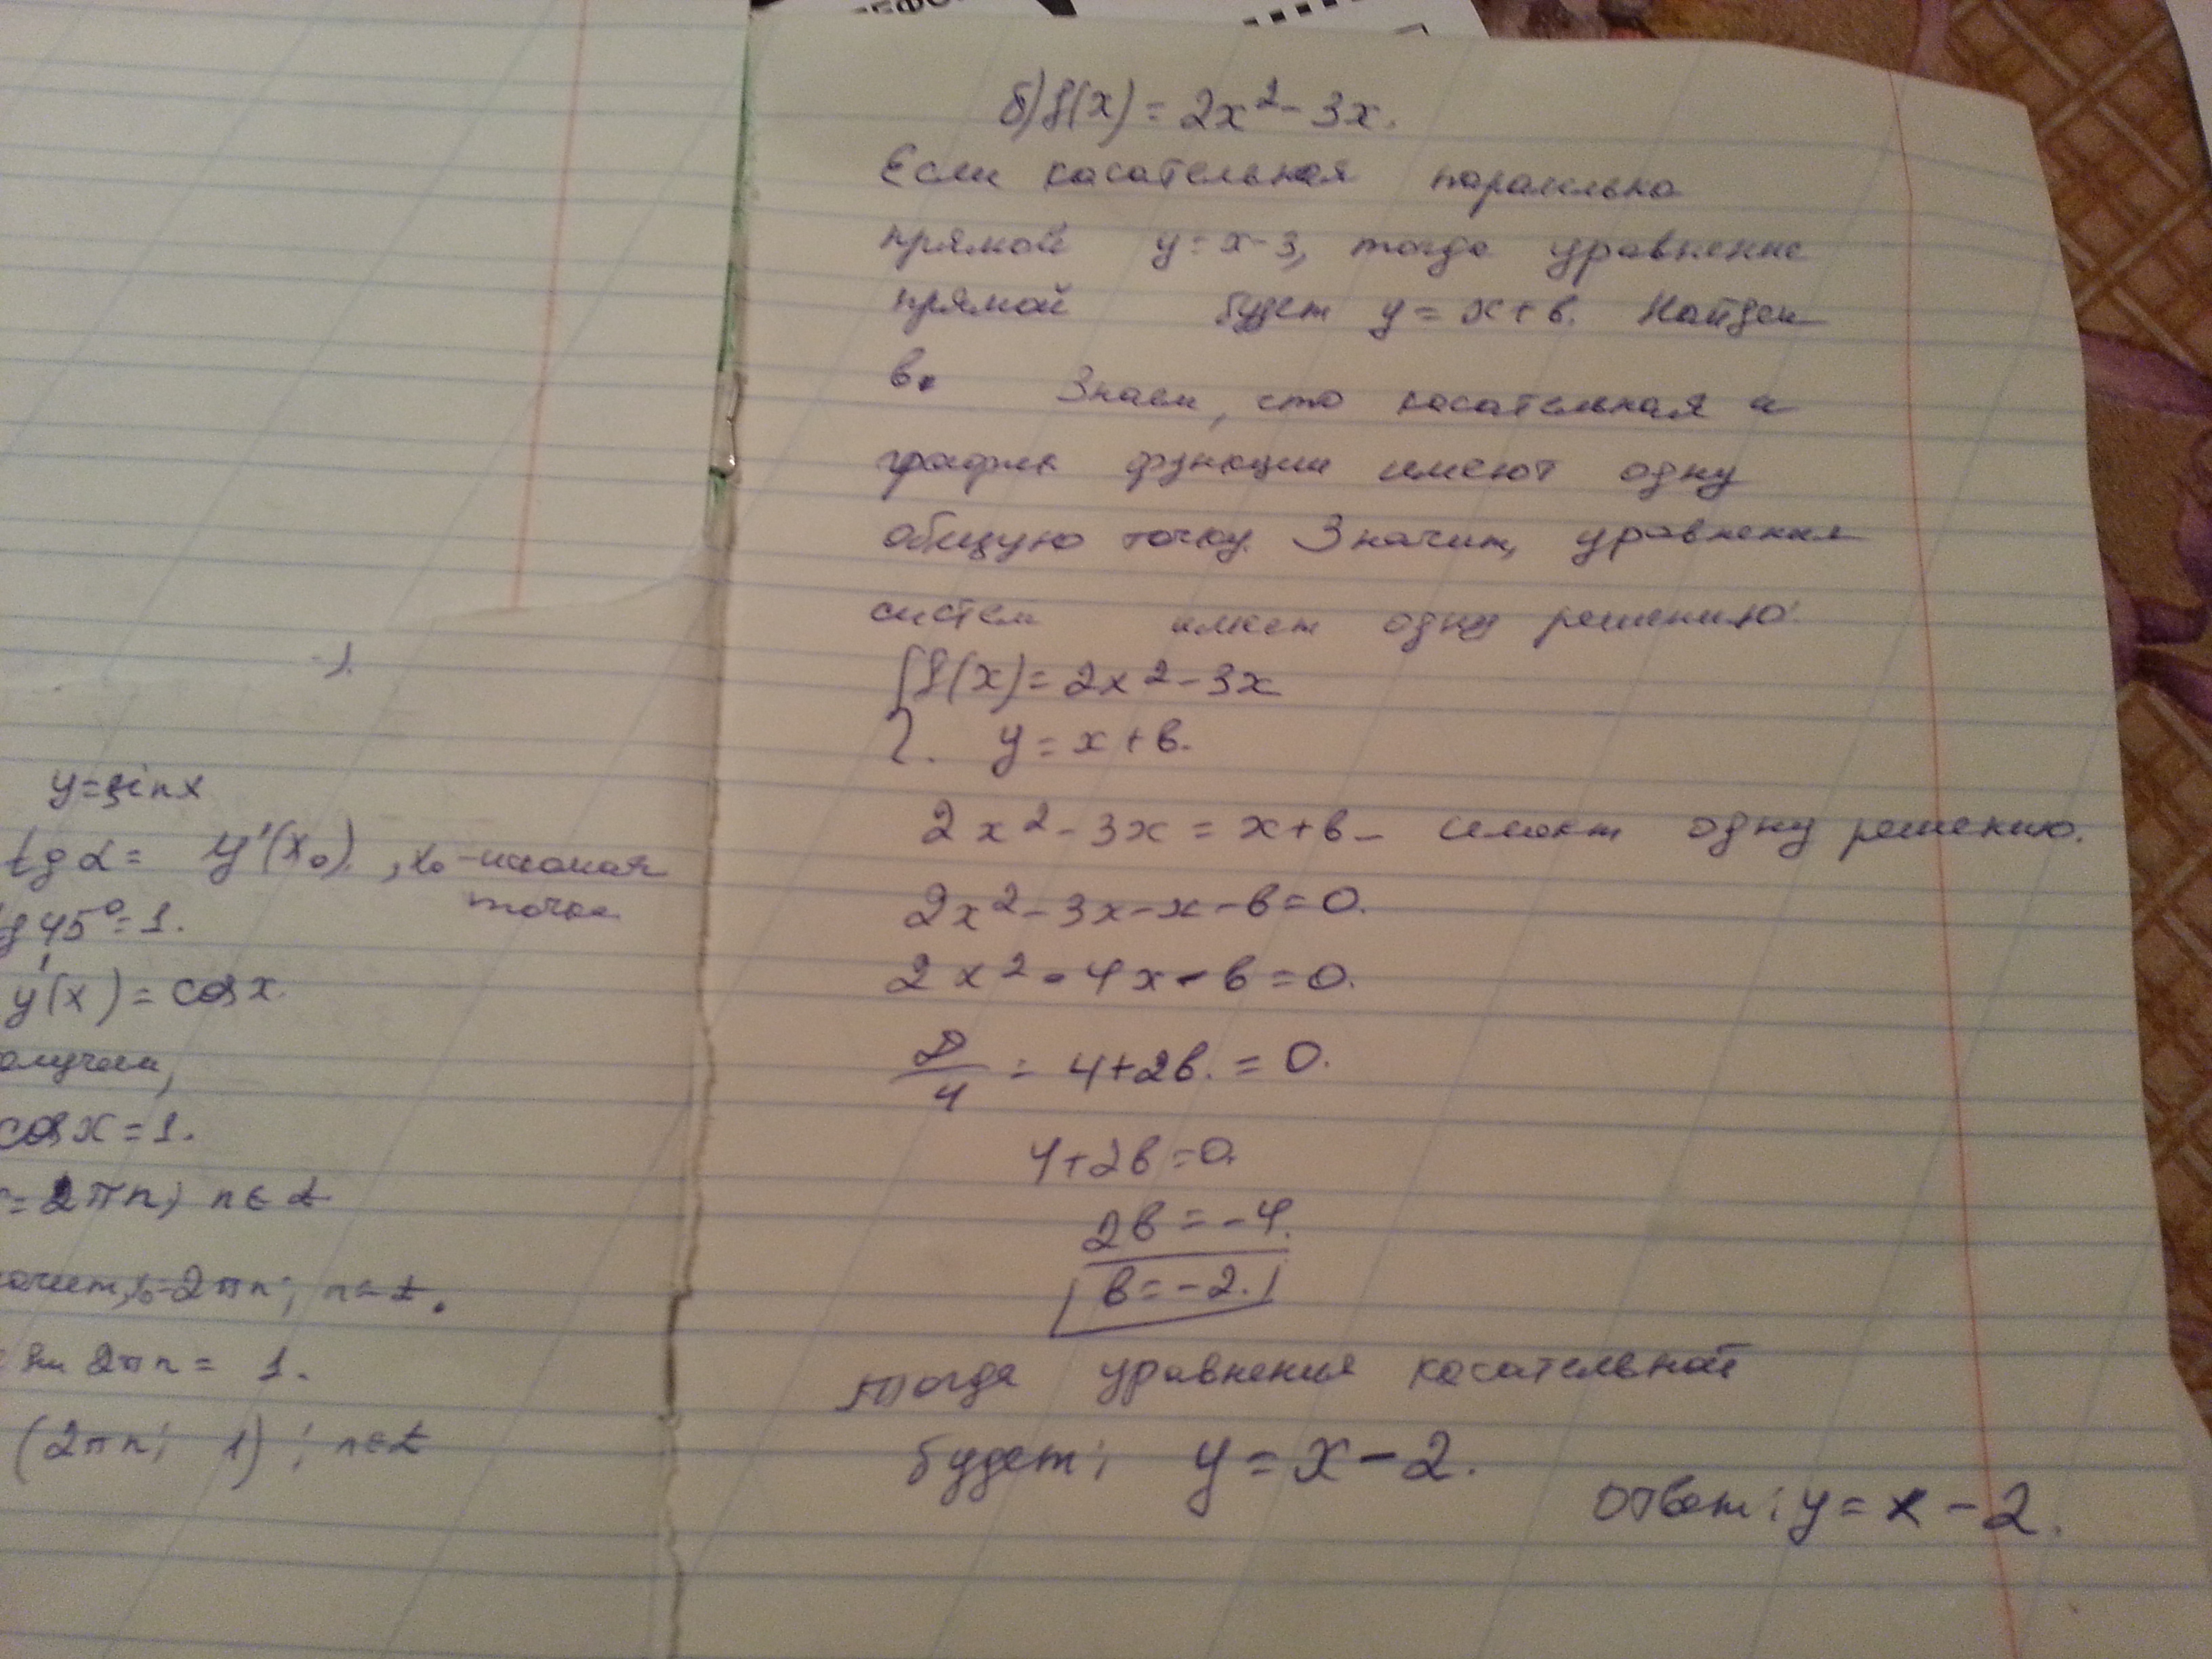 y=sinx
tgα= y'(x₀), x₀ - искомая
точка
tg45°=1.
y'(x) = cosx.
олучаем,
cosx=1.
=2πn; n∈Z
начит, x₀=2πn; n∈Z.
2πn = 1.
(2πn; 1); n∈Z
б) f(x) = 2x² - 3x.
Если касательная паралельна
прямой y=x-3, тогда уравнение
прямой будет y = x+b. Найдем
b. Знаем, что касательная и
график функции имеют одну
общую точку. Значит, уравнения
систем имеет одну решению:
{f(x)=2x²-3x
y=x+b.
2x²-3x=x+b - имеет одну решению.
2x²-3x-x-b=0.
2x²-4x-b=0.
D/4 = 4+2b. = 0.
4+2b=0.
2b=-4.
b=-2.
Тогда уравнения касательной
будет: y=x-2.
Ответ: y=x-2.